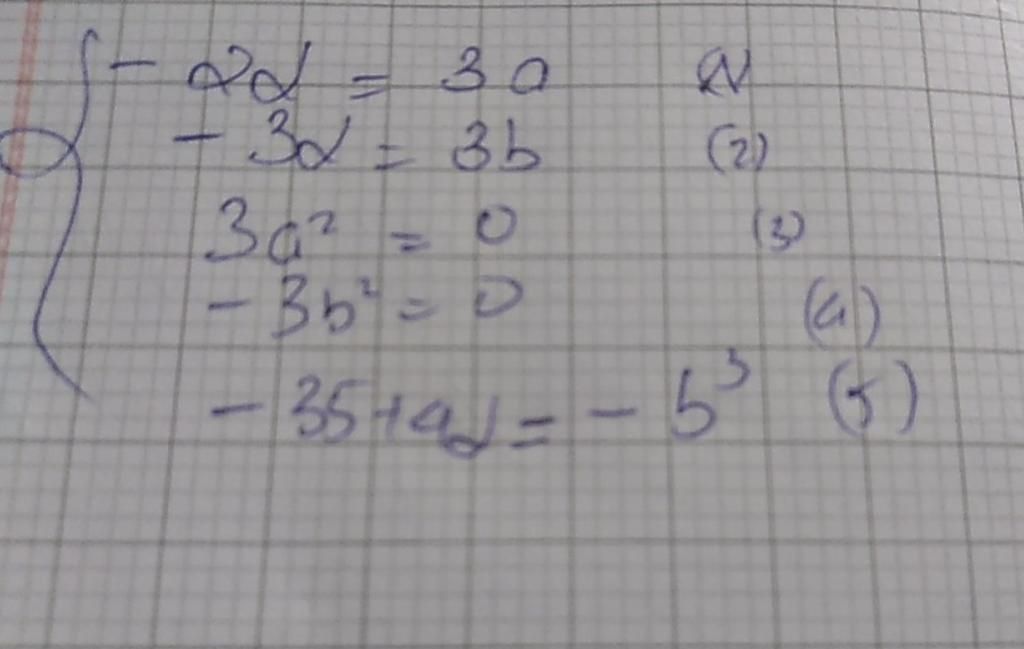 - 2α = 3a (1)
- 3α = 3b (2)
3a² = 0 (3)
- 3b² = 0 (4)
- 35 + 4α = - b³ (5)